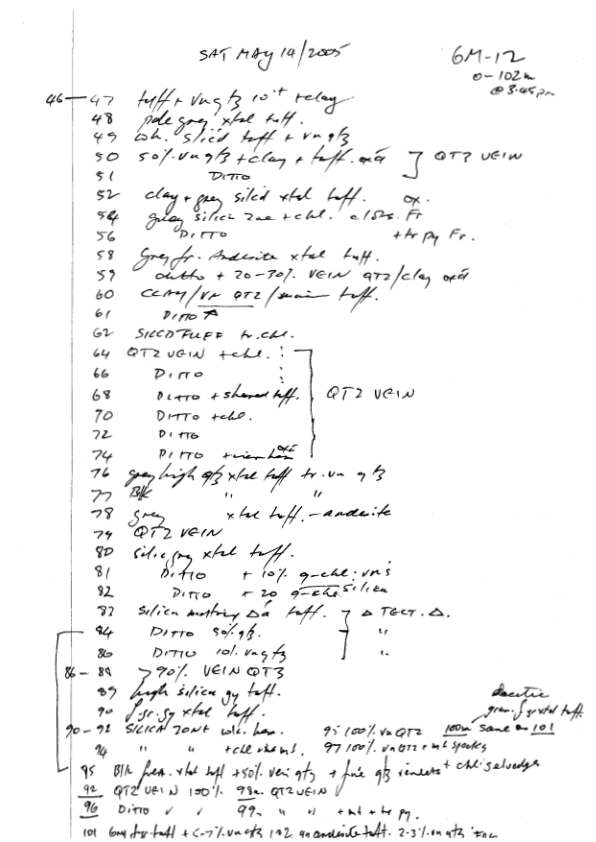 SAT MAY 14/2005
GM-12
0-102m
@ 3:45pm
46 — 47 tuff + vn qtz 10% + clay
48 pale grey xtal tuff.
49 wh. silic'd tuff + vn qtz
50 50% vn qtz + clay + tuff. QTZ VEIN
51 DITTO
52 clay + grey silic'd xtal tuff. ox.
54 grey silica zne + chl. Fr
56 DITTO + tr py Fr.
58 Grey fr. Andesite xtal tuff.
59 ditto + 20-30% VEIN QTZ/clay
60 CLAY/VN QTZ/ tuff.
61 DITTO
62 SILCD TUFF tr. chl.
64 QTZ VEIN + chl.
66 DITTO
68 DITTO + sheared tuff. QTZ VEIN
70 DITTO + chl.
72 DITTO
74 DITTO
76 grey high qtz xtal tuff tr. vn qtz
77 Blk " "
78 grey xtal tuff. - andesite
79 QTZ VEIN
80 silic gry xtal tuff.
81 DITTO + 10% q-chl vns
82 DITTO + 20 q-chl silica
83 silica matrix Δ'd tuff. Δ TECT. Δ.
84 DITTO 50% qtz. "
86 DITTO 10% vn qtz "
86 - 88 >90% VEIN QTZ
89 high silica gy tuff.
90 f.gr. gy xtal tuff.
dacitic
gran. gy xtal tuff.
90 - 92 SILICA ZONE 95 100% vn QTZ 100m same as 101
94 " " + chl 97 100% vn QTZ + mt specks
95 Blk xtal tuff + 50% vein qtz + fine qtz veinlets + chl. selvedges
92 QTZ VEIN 100% 98m QTZ VEIN
96 DITTO 99m " " + mt + tr py.
101 tuff + vn qtz 102 andesite tuff. 2-3% vn qtz